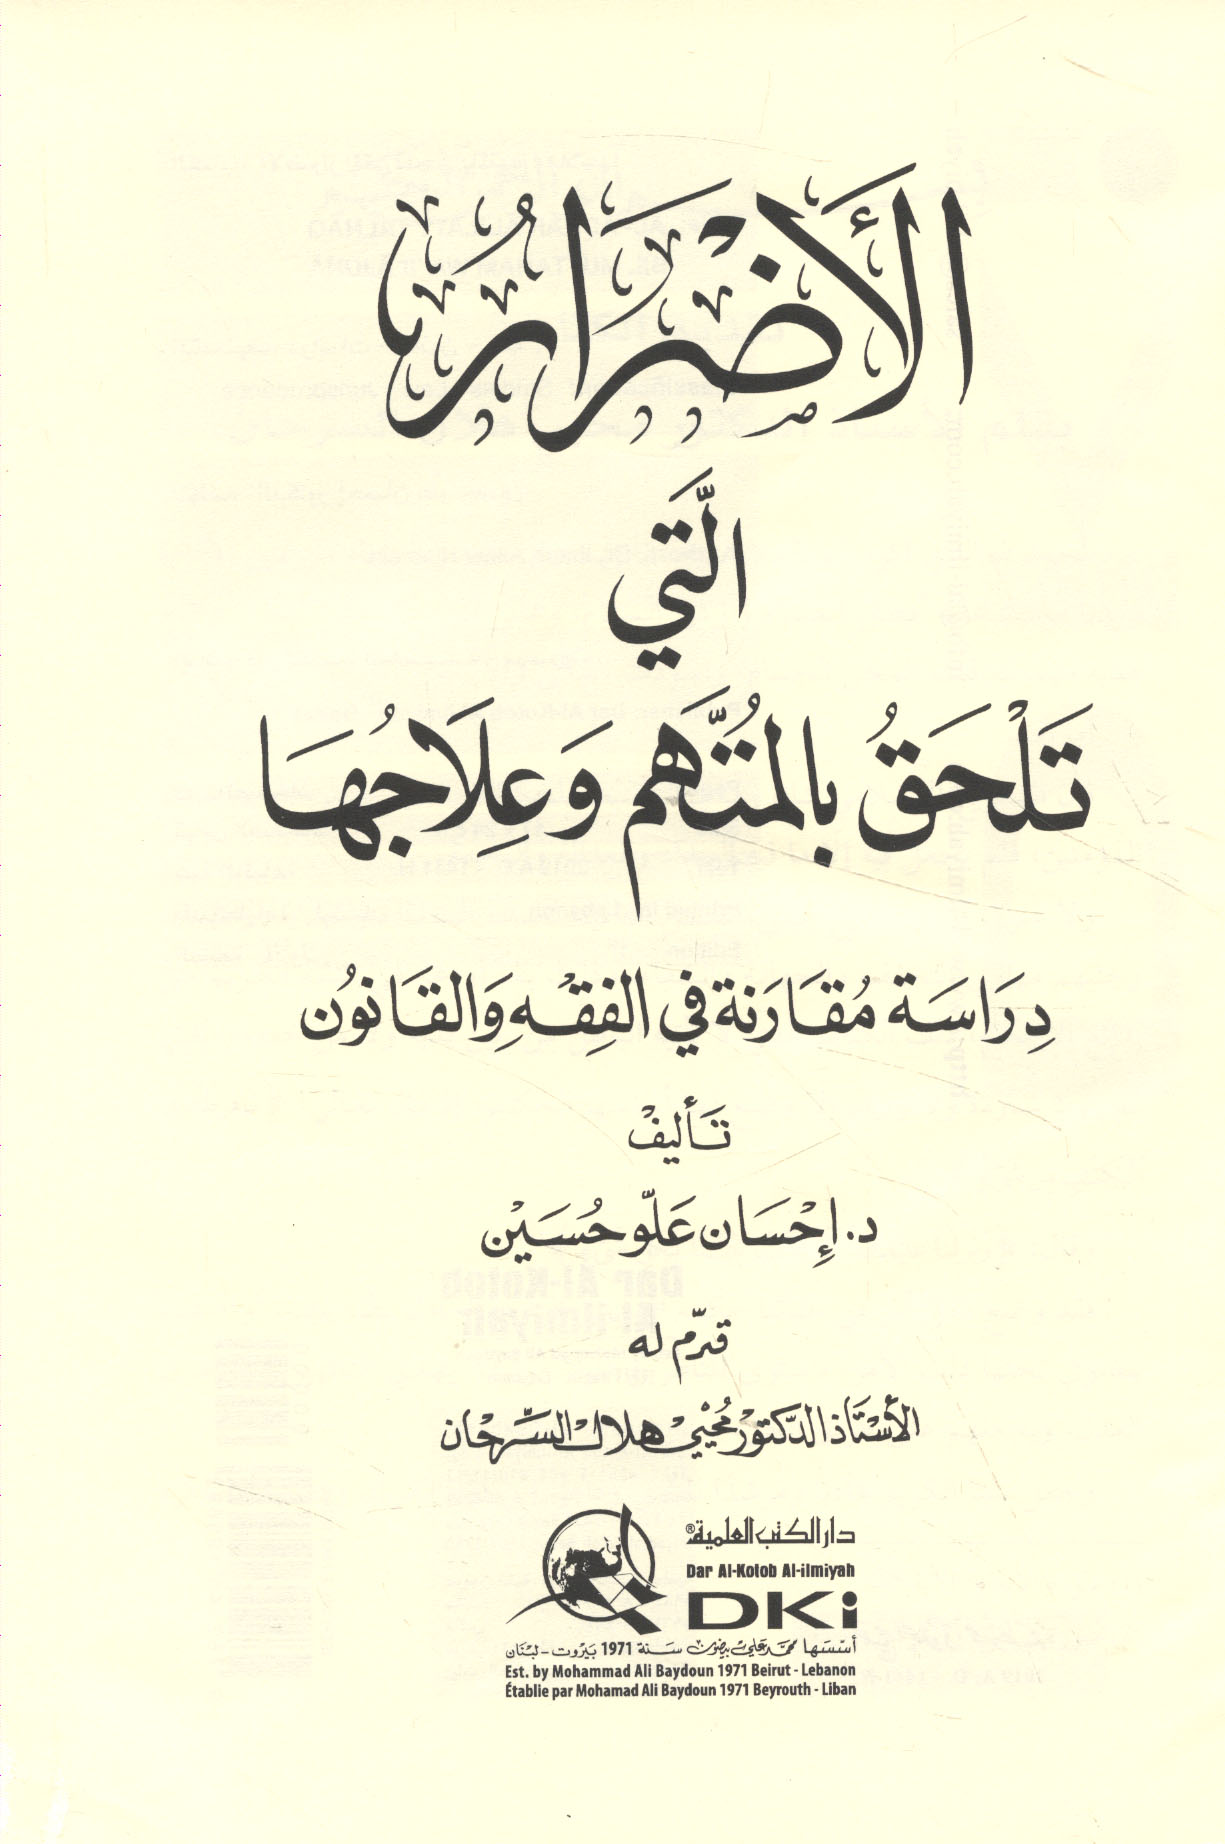 الأَضْرَارُ
الَّتِي
تَلْحَقُ بِالمُتَّهَمِ وَعِلَاجُهَا
دِرَاسَة مُقَارَنة في الفِقْهِ وَالقَانوُن
تَأليفْ
د. إِحْسَان عَلّو حُسَيْن
قدّم له
الأسْتَاذ الدّكتوْر مُحْيِيْ هلال السِّرْحَان
دار الكتب العلمية®
Dar Al-Kotob Al-ilmiyah
DKi
أسّسَها محمد علي بيضون سَنة 1971 بَيْروت - لبْنَان
Est. by Mohammad Ali Baydoun 1971 Beirut - Lebanon
Établie par Mohamad Ali Baydoun 1971 Beyrouth - Liban